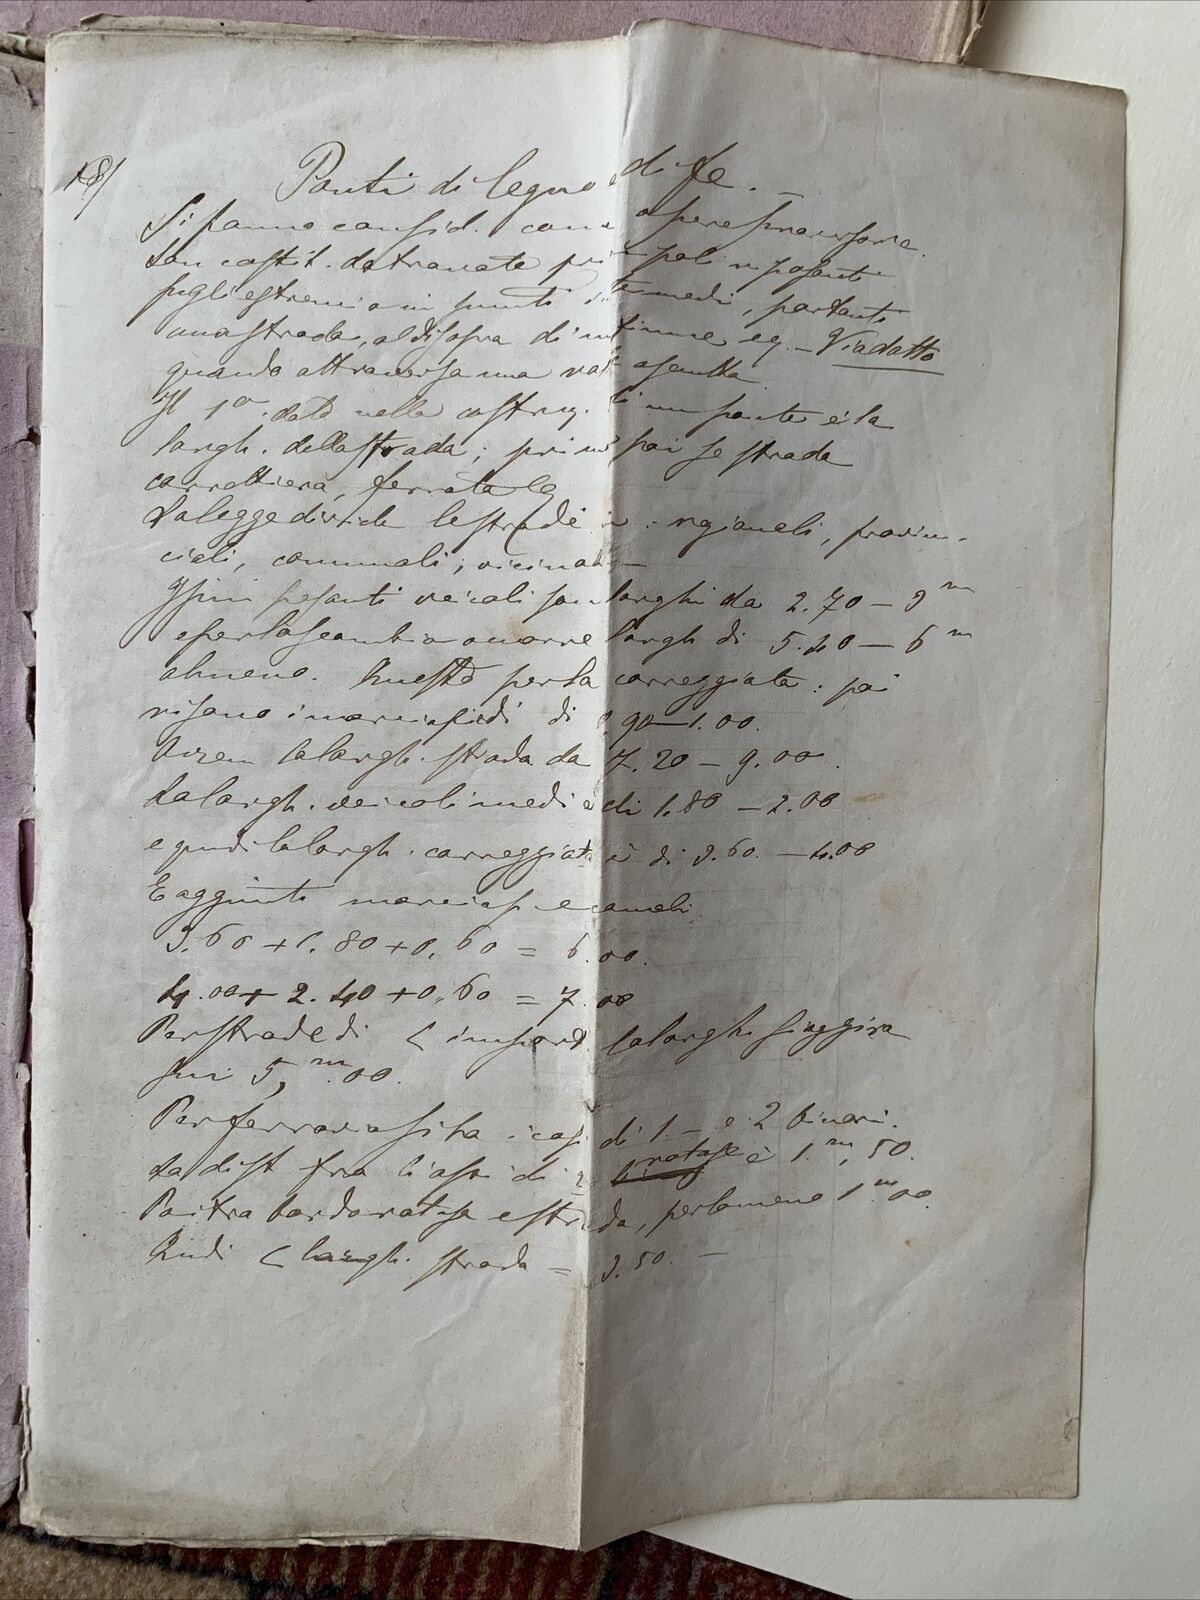 18/
Ponti di legno e di fe. —
Si fanno consid. come opere provvisorie.
Son costit. da travate principali riposanti
sugli estremi o in punti intermedi, portanti
una strada, al disopra di
quando attraversa una valle asciutta Viadatto
Il 1º dato nella costruz. di un ponte è la
largh. della strada; prima poi se strada
carrettiera, ferrata
La legge divide le strade in: nazionali, provin-
ciali, comunali, vicinali —
I più pesanti veicoli son larghi da 2.70 — 3 m
e per lo scambio occorre largh di 5.40 — 6 m
almeno. Questo per la carreggiata: poi
vi sono i marciapiedi di 0,90 — 1.00.
Avrem la largh. strada da 7.20 — 9.00.
La largh. veicoli medi è di 1.80 — 2.00
e quindi la largh. carreggiata è di 3.60. — 4.00
E aggiunti marciap e canali
3.60 + 1.80 + 0,60 = 6.00.
4.00 + 2.40 + 0,60 = 7.00
Per strade di < import la largh si aggira
sui 5, m 00.
Per ferrovia si ha i casi di 1 — e 2 binari.
La dist fra li assi di 2 rotaje è 1. m, 50.
Poi tra bordo rotaja e strada, per lo meno 1 m 00
Quindi < largh. strada = 3.50. —